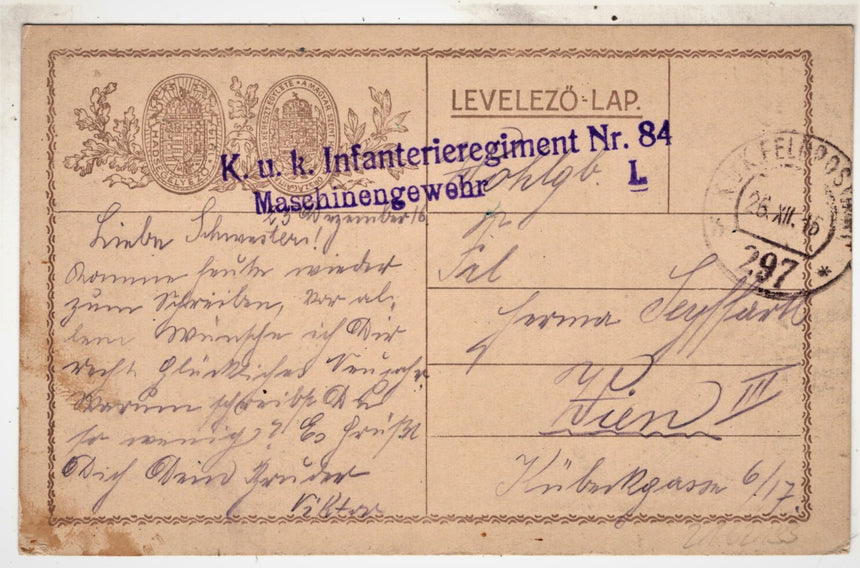 LEVELEZŐ-LAP.
K. u. k. Infanterieregiment Nr. 84
Maschinengewehr
L
K.u.K. FELDPOSTAMT
26. XII. 16
297
*
25 Dezember 16
Liebe Schwester!
Komme heute wieder
zum Schreiben, vor al-
lem Wünsche ich Dir
recht Glückliches Neujahr.
Warum schreibst Du
so wenig? Es Grüßt
Dich Dein Bruder
Viktor
Wohlgb.
Frl
Herma Seyffart
Wien III
Kübeckgasse 6/17.